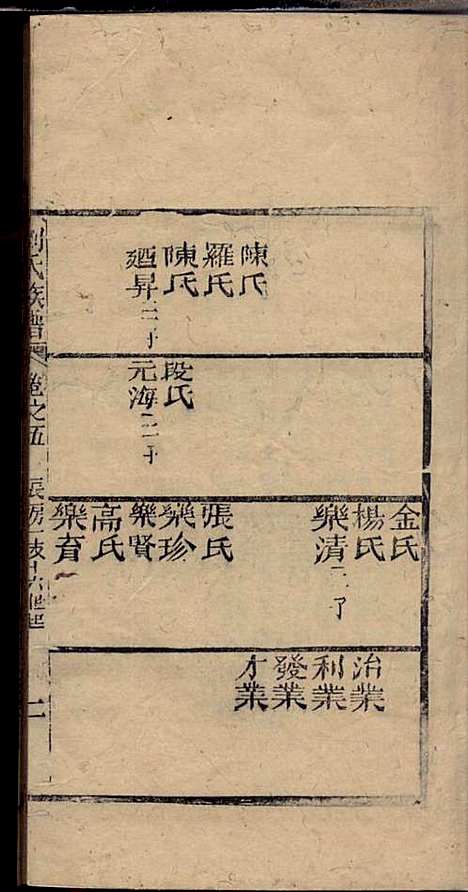 陳氏
羅氏
陳氏
廼昇二子
段氏
元海二子
金氏
楊氏
樂清二子
張氏
樂珍
樂賢
高氏
樂育
治業
利業
發業
才業
劉氏族譜 卷之五 長房一支十六世起 二